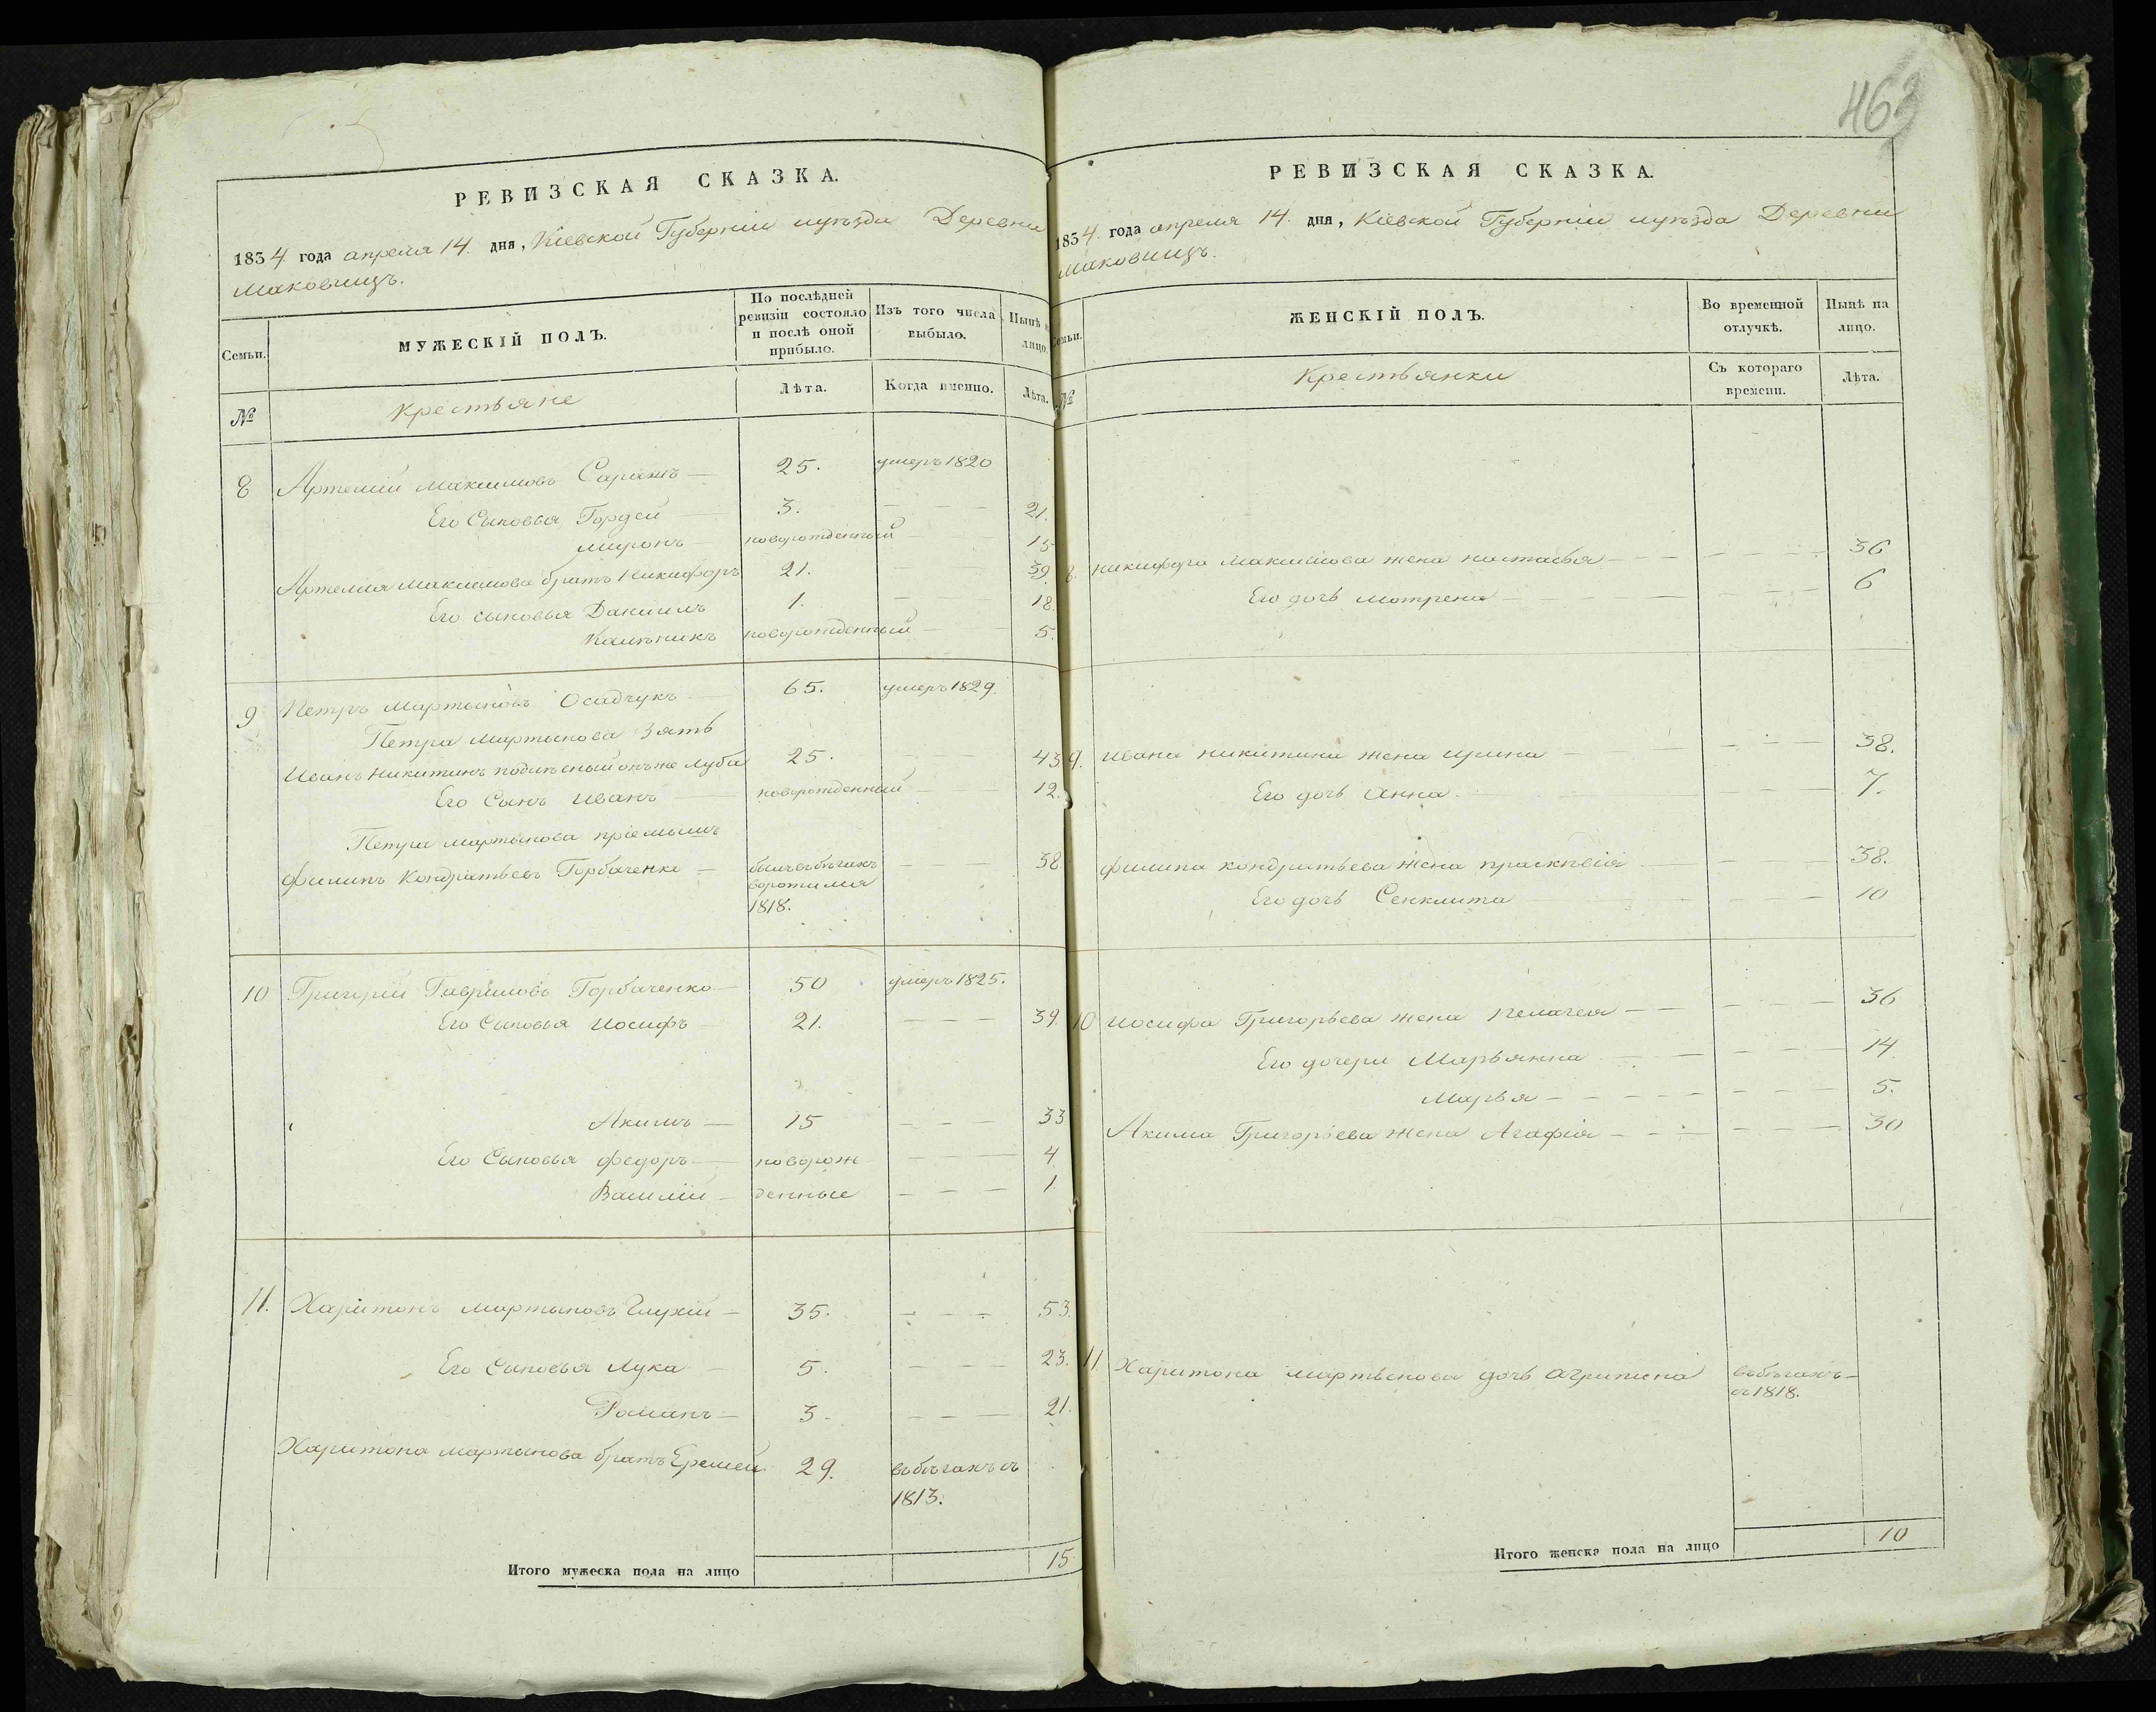 463
РЕВИЗСКАЯ СКАЗКА.
1834 года апреля 14. дня, Кіевской Губерніи и уѣзда Деревни
Маковищъ.
Семьи.
МУЖЕСКІЙ ПОЛЪ.
По послѣдней ревизіи состояло и послѣ оной прибыло.
Изъ того числа выбыло.
Нынѣ на лицо.
№
Крестьяне
Лѣта.
Когда именно.
Лѣта.
8 Артемій Максимовъ 25. умеръ 1820
Его Сыновья Гордей 3. 21.
Миронъ новорожденный 15
Артемія Максимова братъ Никифоръ 21. 39.
Его сыновья Даниилъ 1. 18.
новорожденный 5.
9 Петръ Мартыновъ Осадчукъ 65. умеръ 1829.
Петра Мартынова Зять
Иванъ Никитинъ онъ же Луба 25. 43
Его Сынъ Иванъ новорожденный 12.
Петра Мартынова пріемышъ
Филипъ Кондратьевъ Горбаченко былъ въ бѣгахъ 38
воротился
1818.
10 Григорій Гавриловъ Горбаченко 50 умеръ 1825.
Его Сыновья Иосифъ 21. 39.
Акимъ 15 33
Его Сыновья Федоръ новорож 4
Василій денные 1
11. Харитонъ Мартыновъ Глухій 35. 53.
Его Сыновья Лука 5. 23.
Романъ 3. 21.
Харитона Мартынова братъ Еремей 29. въ бѣгахъ съ
1813.
Итого мужеска пола на лицо 15
РЕВИЗСКАЯ СКАЗКА.
1834. года апреля 14. дня, Кіевской Губерніи и уѣзда Деревни
Маковищъ.
Семьи.
ЖЕНСКІЙ ПОЛЪ.
Во временной отлучкѣ.
Нынѣ на лицо.
№
Крестьянки
Съ котораго времени.
Лѣта.
8. Никифора Максимова жена Настасья 36
Его дочь Мотрена 6
9. Ивана Никитина жена Ирина 38.
Его дочь Анна 7.
Филипа Кондратьева жена Прасквія 38.
Его дочь Сенклита 10
10 Иосифа Григорьева жена Пелагея 36
Его дочери Марьянна 14.
Марья 5.
Акима Григорьева жена Агафія 30
11 Харитона Мартынова дочь Агрипина въ бѣгахъ
съ 1818.
Итого женска пола на лицо 10